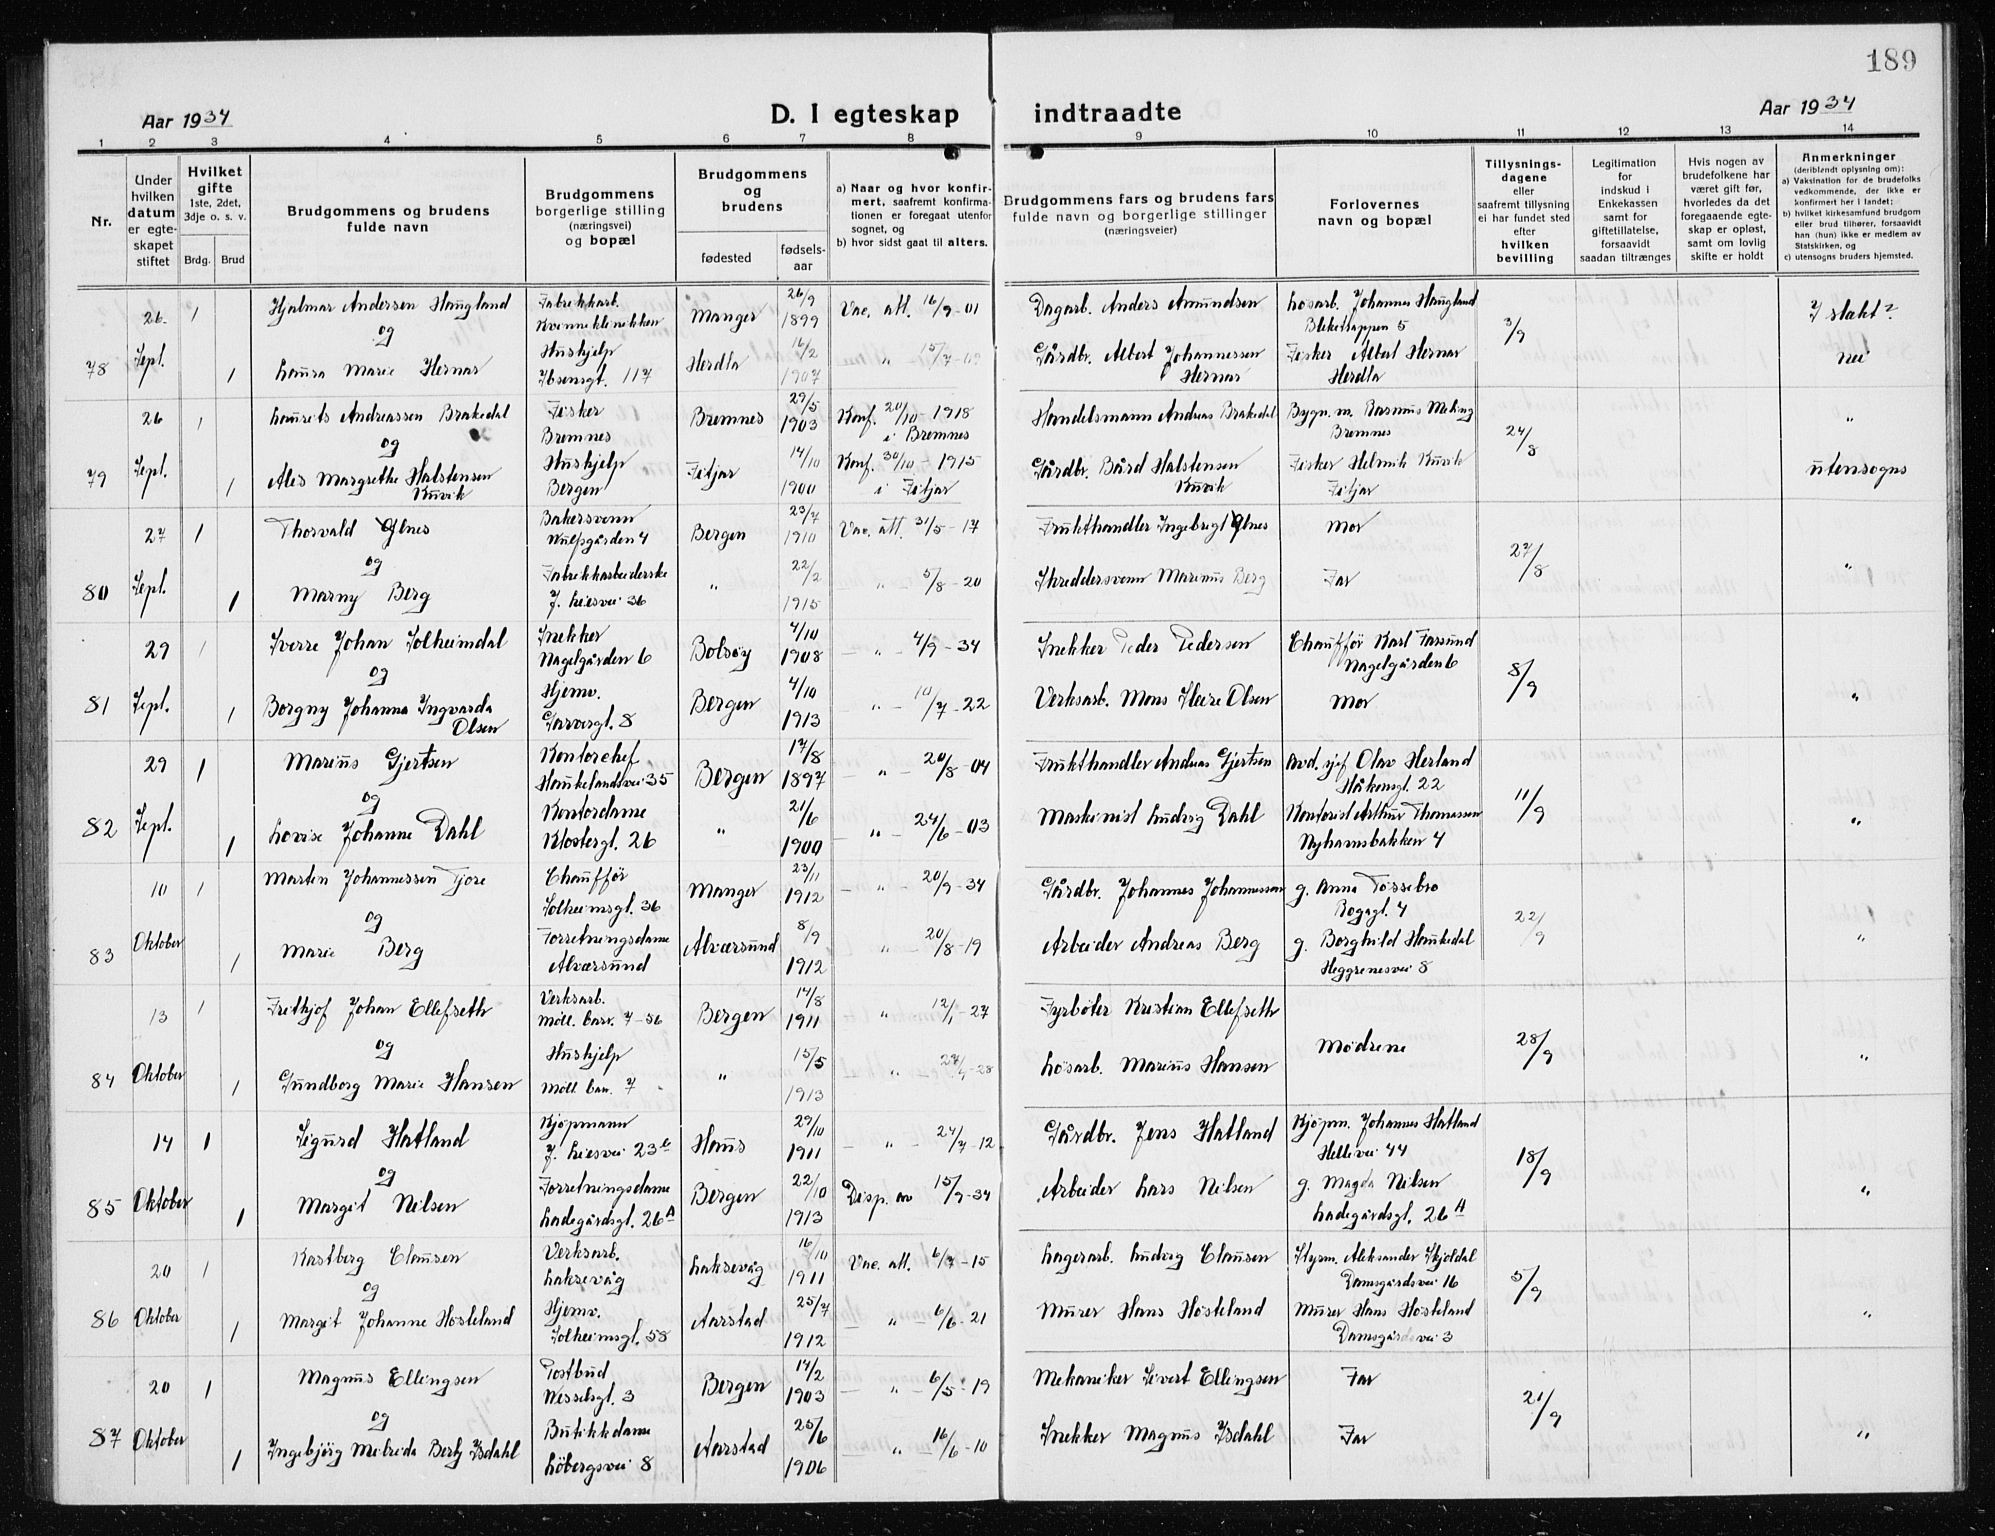 189
Aar 1934
D. I egteskap indtraadte
Aar 1934
1 2 3 4 5 6 7 8 9 10 11 12 13 14
Nr.
Under hvilken datum er egteskapet stiftet
Hvilket gifte 1ste, 2det, 3dje o. s. v.
Brdg. Brud
Brudgommens og brudens fulde navn
Brudgommens borgerlige stilling (næringsvei) og bopæl
Brudgommens og brudens
fødested fødselsaar
a) Naar og hvor konfirmert, saafremt konfirmationen er foregaat utenfor sognet, og
b) hvor sidst gaat til alters.
Brudgommens fars og brudens fars fulde navn og borgerlige stillinger (næringsveier)
Forlovernes navn og bopæl
Tillysningsdagene eller saafremt tillysning ei har fundet sted efter hvilken bevilling
Legitimation for indskud i Enkekassen samt for giftetillatelse, forsaavidt saadan tiltrænges
Hvis nogen av brudefolkene har været gift før, hvorledes da det foregaaende egteskap er opløst, samt om lovlig skifte er holdt
Anmerkninger (deriblendt oplysning om):
a) Vaksination for de brudefolks vedkommende, der ikke er konfirmert her i landet;
b) hvilket kirkesamfund brudgom eller brud tilhører, forsaavidt han (hun) ikke er medlem av Statskirken, og
c) utensogns bruders hjemsted.
26. 1 Hjalmar Andersen Haugland Fabrikkarb. Kvinneklinikken Manger 26/9 1899 Vac. att. 16/9-01 Dagarb. Anders Amundsen Løsarb. Johannes Haugland 3/9 I slekt?
Blekettappen 5
og
78 Sept. 1 Laura Marie Hernar Hushjelp Ibsensgt. 117 Herdla 16/2 1907 " 15/7 Gårdbr. Albert Johannessen Hernar Fisker Albert Hernar Herdla nei
26 1 Laurits Andreassen Brakedal Fisker Bremnes Bremnes 29/5 1903 Konf. 20/10-1918 i Bremnes Handelsmann Andreas Brakedal Bygn. m. Rasmus Meling Bremnes 24/8 "
og
79 Sept. 1 Ales Margrethe Halstensen Ruvik Hushjelp Bergen Fitjar 14/10 1900 Konf. 30/10-1915 i Fitjar Gårdbr. Bård Halstensen Ruvik Fisker Helmik Ruvik Fitjar utensogns
27 1 Thorvald Glnes Bakersvenn Wulfsgården 4 Bergen 23/7 1910 Vac. att. 31/5-17 Frukthandler Ingebrigt Mor 27/8
og
80 Sept. 1 Marny Berg Fabrikkarbeiderske J. Liesvei 36 " 22/2 1915 " 5/8-20 Skreddersvenn Marinus Berg Far "
29 1 Sverre Johan Solheimdal Snekker Nagelgården 6 Bolsøy 4/10 1908 — " — 4/9-34 Snekker Peder Pedersen Chauffør Karl Farsund Nagelgården 6 8/9
og
81 Sept. 1 Borgny Johanna Ingvarda Olsen Hjemv. Garvergt. 8 Bergen 4/10 1913 — " — 10/7-22 Verksarb. Mons Olsen Mor "
29 1 Marius Gjertsen Kontorchef Haukelandsvei 35 Bergen 17/8 1897 — " — 20/8-04 Frukthandler Andreas Gjertsen Avd. sjef Olav Herland Håkonsgt. 22 11/9
og
82 Sept. 1 Lovise Johanne Dahl Kontordame Klostergt. 26 " 21/6 1900 — " — 24/6-03 Maskinist Ludvig Dahl Kontorist Arthur Thomassen Nyhavnsbakken 4 "
10 1 Martin Johannessen Tjore Chauffør Solheimsgt. 36 Manger 23/11 1912 — " — 20/9-34 Gårdbr. Johannes Johannessen g. Anna Tossebro 22/9
og
83 Oktober 1 Marie Berg Forretningsdame Alværsund Alværsund 8/9 1912 " 20/8-19 Arbeider Andreas Berg g. Borghild Haukedal Heggrenesvei 8 "
13 1 Frithjof Johan Ellefseth Verksarb. Møll. barv. 7-56 Bergen 14/8 1911 " 12/1-27 Fyrbøter Kristian Ellefseth Mødrene 28/9
og
84 Oktober 1 Gundborg Marie Hansen Hushjelp Møll. bar. 7 " 15/5 1913 — " — -28 Løsarb. Marius Hansen "
14 1 Sigurd Hatland Kjøpmann J. Liesvei 23 c Haus 29/10 1911 — " — 24/7-12 Gårdbr. Jens Hatland Kjøpm. Johannes Hatland Hellevei 44 18/9
og
85 Oktober 1 Margit Nilsen Forretningsdame Ladegårdsgt. 26 A Bergen 22/10 1913 Disp. av 15/9-34 Arbeider Lars Nilsen g. Magda Nilsen Ladegårdsgt. 26 A "
20 1 Kastberg Clausen Verksarb. Laksevåg Laksevåg 16/10 1911 Vac. att. 6/7-15 Lagerarb. Ludvig Clausen Styrm. Aleksander Skjoldal Damsgårdsvei 16 5/9
og
86 Oktober 1 Margit Johanne Hosteland Hjemv. Solheimsgt. 58 Aarstad 25/7 1912 — " — 6/6-21 Murer Hans Hosteland Murer Hans Hosteland Damsgårdsvei 3 "
20 1 Magnus Ellingsen Postbud Wesselsgt. 3 Bergen 14/2 1903 — " — 6/5-19 Mekaniker Sivert Ellingsen Far 21/9
og
87 Oktober 1 Ingebjörg Melreida Berly Isdahl Butikkdame Løbergsvei 8 Aarstad 25/6 1906 — " — 16/6-10 Snekker Magnus Isdahl Far "